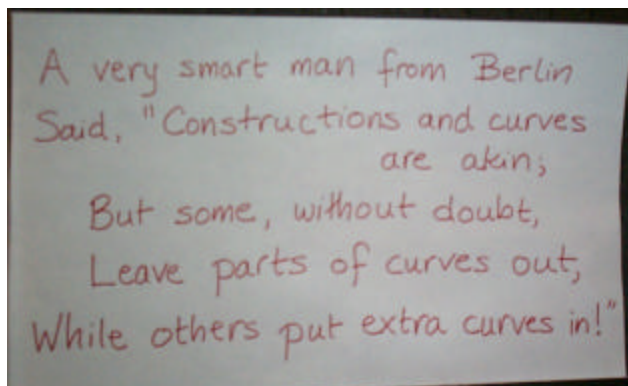 A very smart man from Berlin
Said, "Constructions and curves
are akin;
But some, without doubt,
Leave parts of curves out,
While others put extra curves in!"